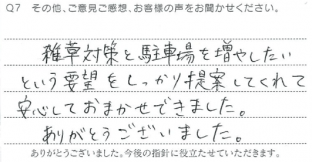 Q7 その他、ご意見ご感想、お客様の声をお聞かせください。
雑草対策と駐車場を増やしたい
という要望をしっかり提案してくれて
安心しておまかせできました。
ありがとうございました。
ありがとうございました。今後の指針に役立たせていただきます。